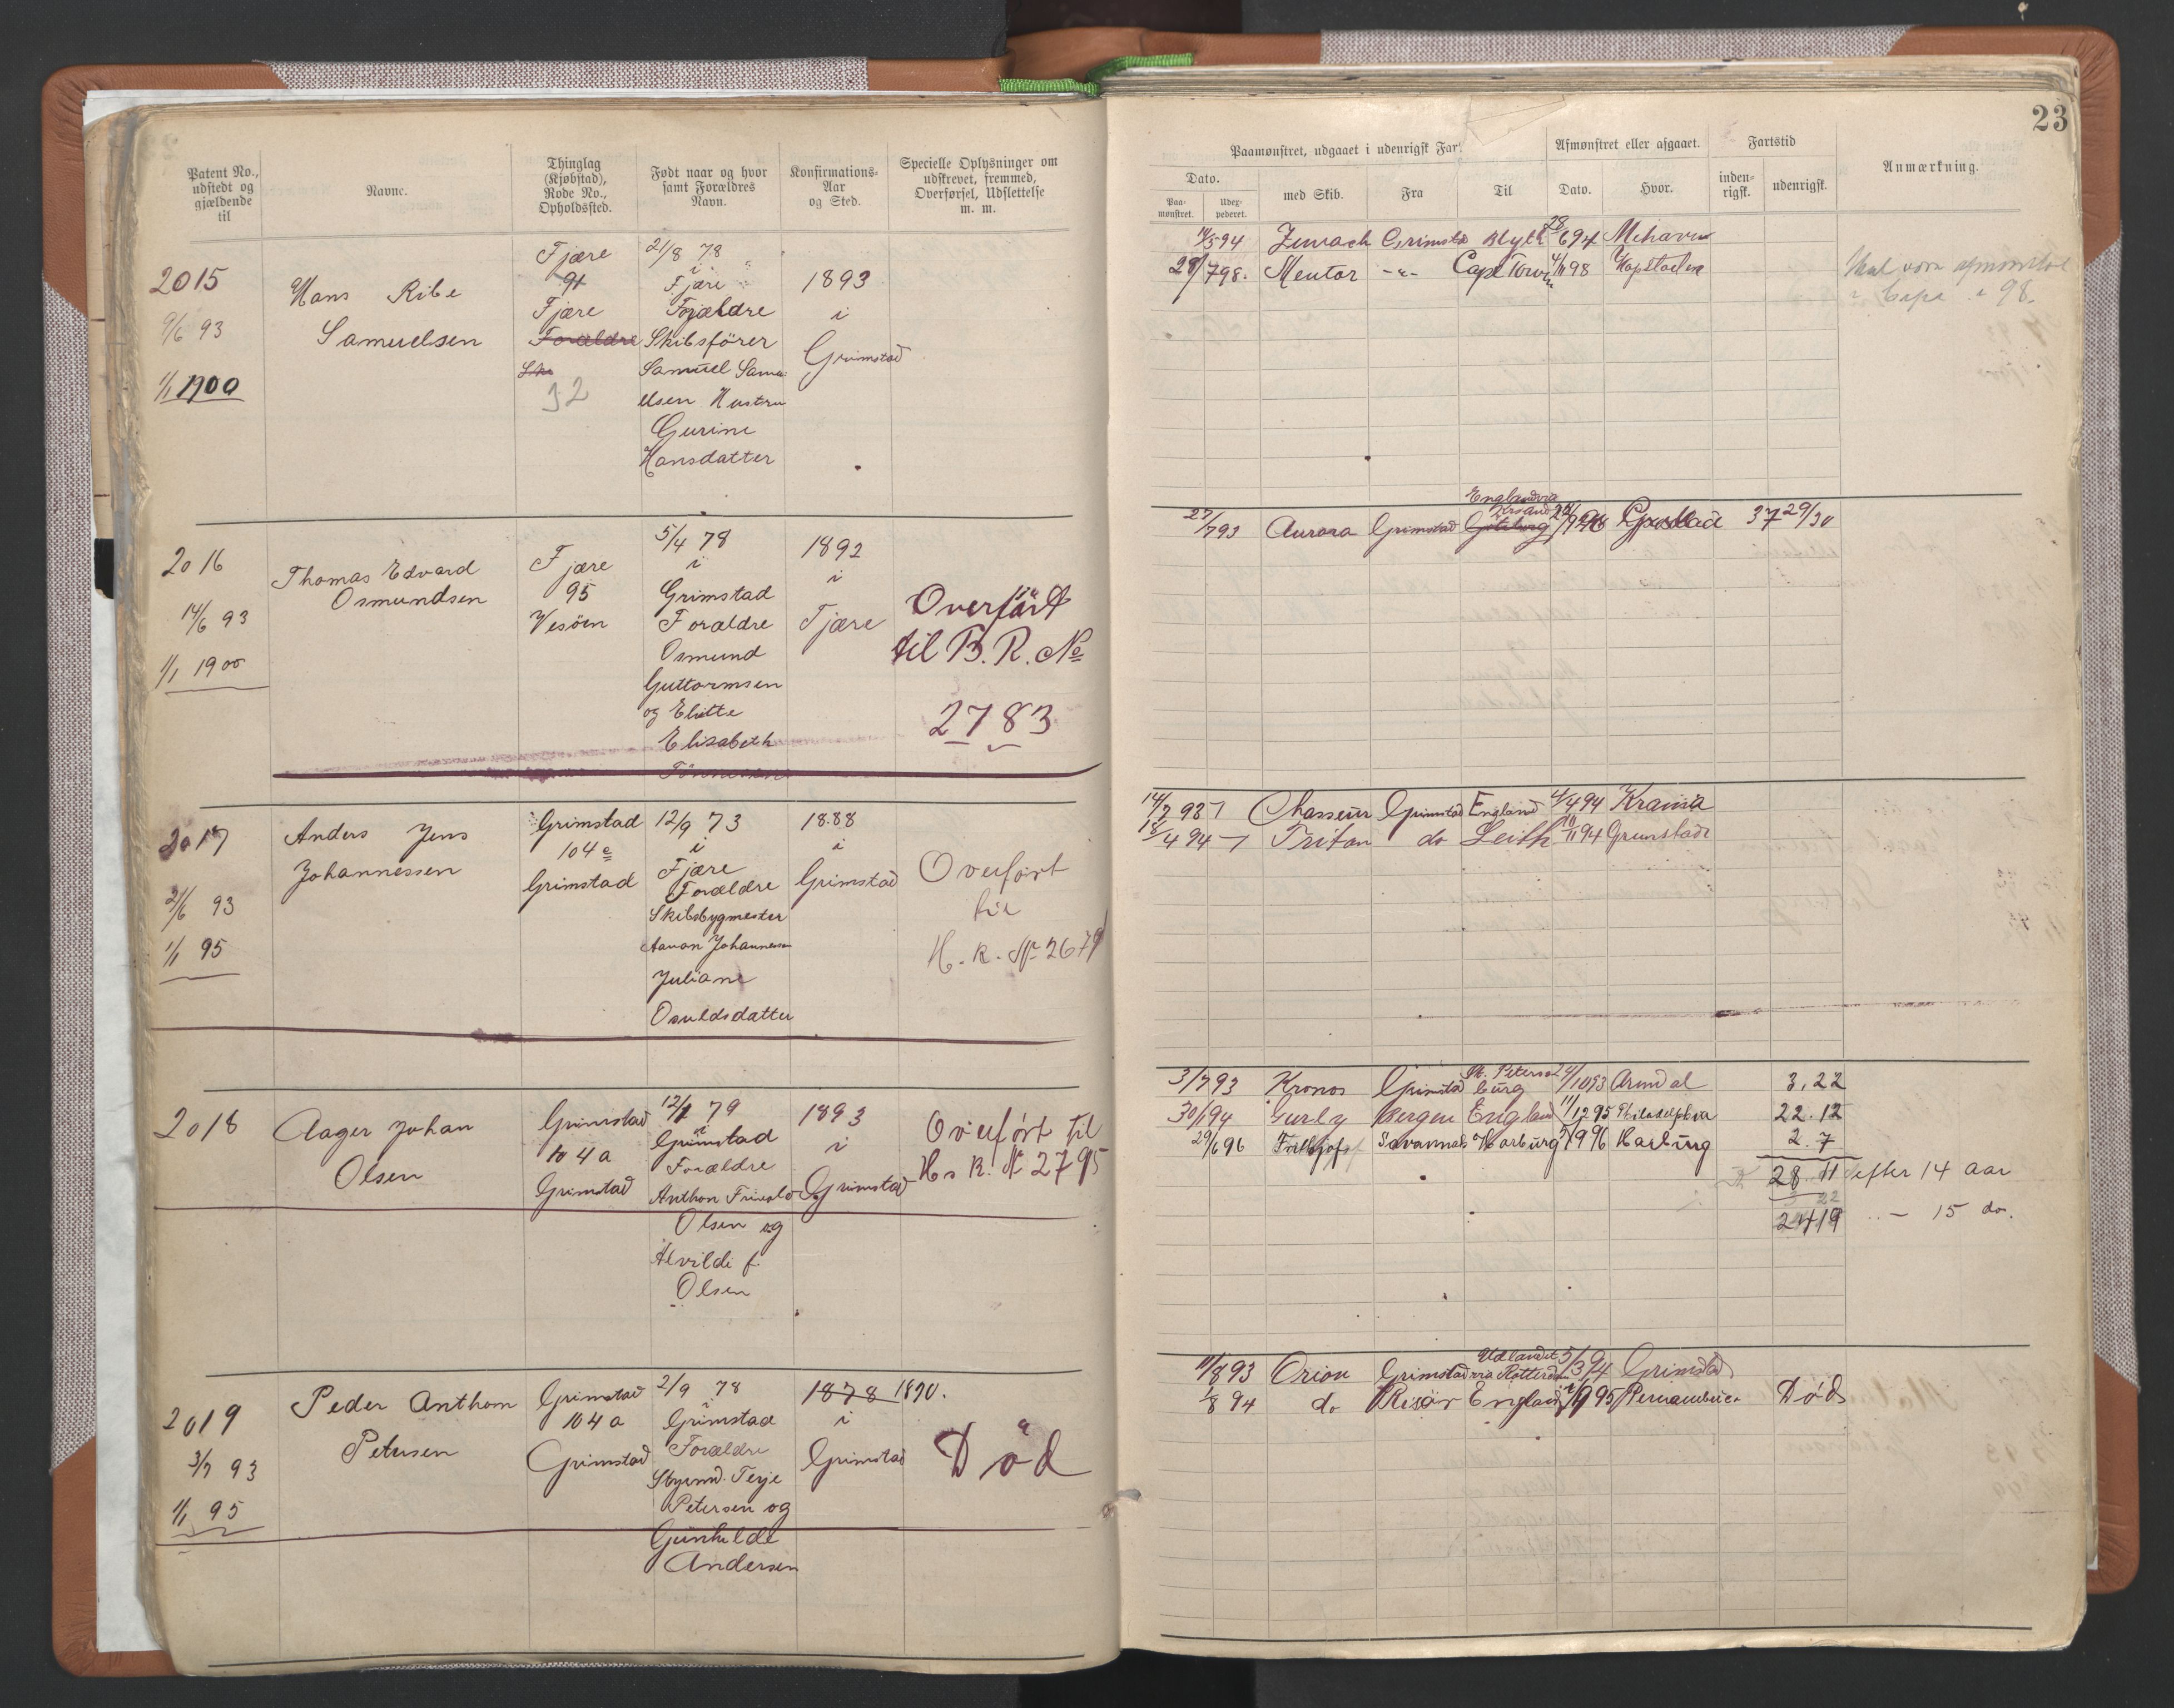 23
Patent No., udstedt og gjældende til
Navne.
Thinglag (Kjøbstad), Rode No., Opholdssted.
Født naar og hvor samt Forældres Navn.
Konfirmations-Aar og Sted.
Specielle Oplysninger om udskrevet, fremmed, Overførsel, Udslettelse m. m.
Paamønstret, udgaaet i udenrigsk Fart.
Afmønstret eller afgaaet.
Fartstid
Anmærkning.
Dato.
Paa-mønstret.
Udex-pederet.
med Skib.
Fra
Til
Dato.
Hvor.
inden-rigsk.
udenrigsk.
2015
9/6 93
1/1 1900
Hans Ribe
Samuelsen
Fjære
91
Fjære
Forældre
32
21/8 78
i
Fjære
Forældre
Skibsfører
Samuel Samu
elsen Hustru
Gurine
Hansdatter
1893
i
Grimstad
14/5 94 Grimstad Blyth 28/6 94
28/7 98. Mentor -"- Cape Town 4/11 98 Kapstaden
i Cape i 98.
2016
14/6 93
1/1 1900
Thomas Edvard
Osmundsen
Fjære
95
Vesöen
5/4 78
i
Grimstad
Forældre
Osmund
Guttormsen
og Elutte
Elisabeth
Tönnesen
1892
i
Fjære
Overført
til B. R. No
2783
27/7 93 Aurora Grimstad Göteborg
England via
37 29/30
2017
21/6 93
1/1 95
Anders Jens
Johannessen
Grimstad
104 e
Grimstad
12/9 73
i
Fjære
Forældre
Skibsbygmester
Aanon Johannesen
Juliane
Osuldsdatter
1888
i
Grimstad
Overført
til
H. R. No 2679
14/7 93 Chasseur Grimstad England 4/4 94 Krania
18/4 94 Triton do Leith 10/11 94 Grimstad
2018
Aager Johan
Olsen
Grimstad
104 a
Grimstad
12/1 79
i
Grimstad
Forældre
Anthon Frivold
Olsen og
Alvilde f.
Olsen
1893
i
Grimstad
Overført til
H. R. No 2795
3/7 93 Kronos Grimstad St. Petersburg 24/10 93 Arendal 3.22
30/1 94 Gurly Bergen England 11/12 95 Philadelphia 22.12
29/6 96 Frithjof Savannah Harburg 5/9 96 Harburg 2.7
28 11 efter 14 Aar
22
24 19 " - 15 do.
2019
3/7 93
1/1 95
Peder Anthon
Petersen
Grimstad
104 a
Grimstad
2/9 78
i
Grimstad
Forældre
Styrmd. Terje
Petersen og
Gunhilde
Andersen
1878 1890.
i
Grimstad
Död
11/8 93 Orion Grimstad Udlandet via Rotterdam 5/3 94 Grimstad
1/8 94 do Risør England 95 Pernambuco Död